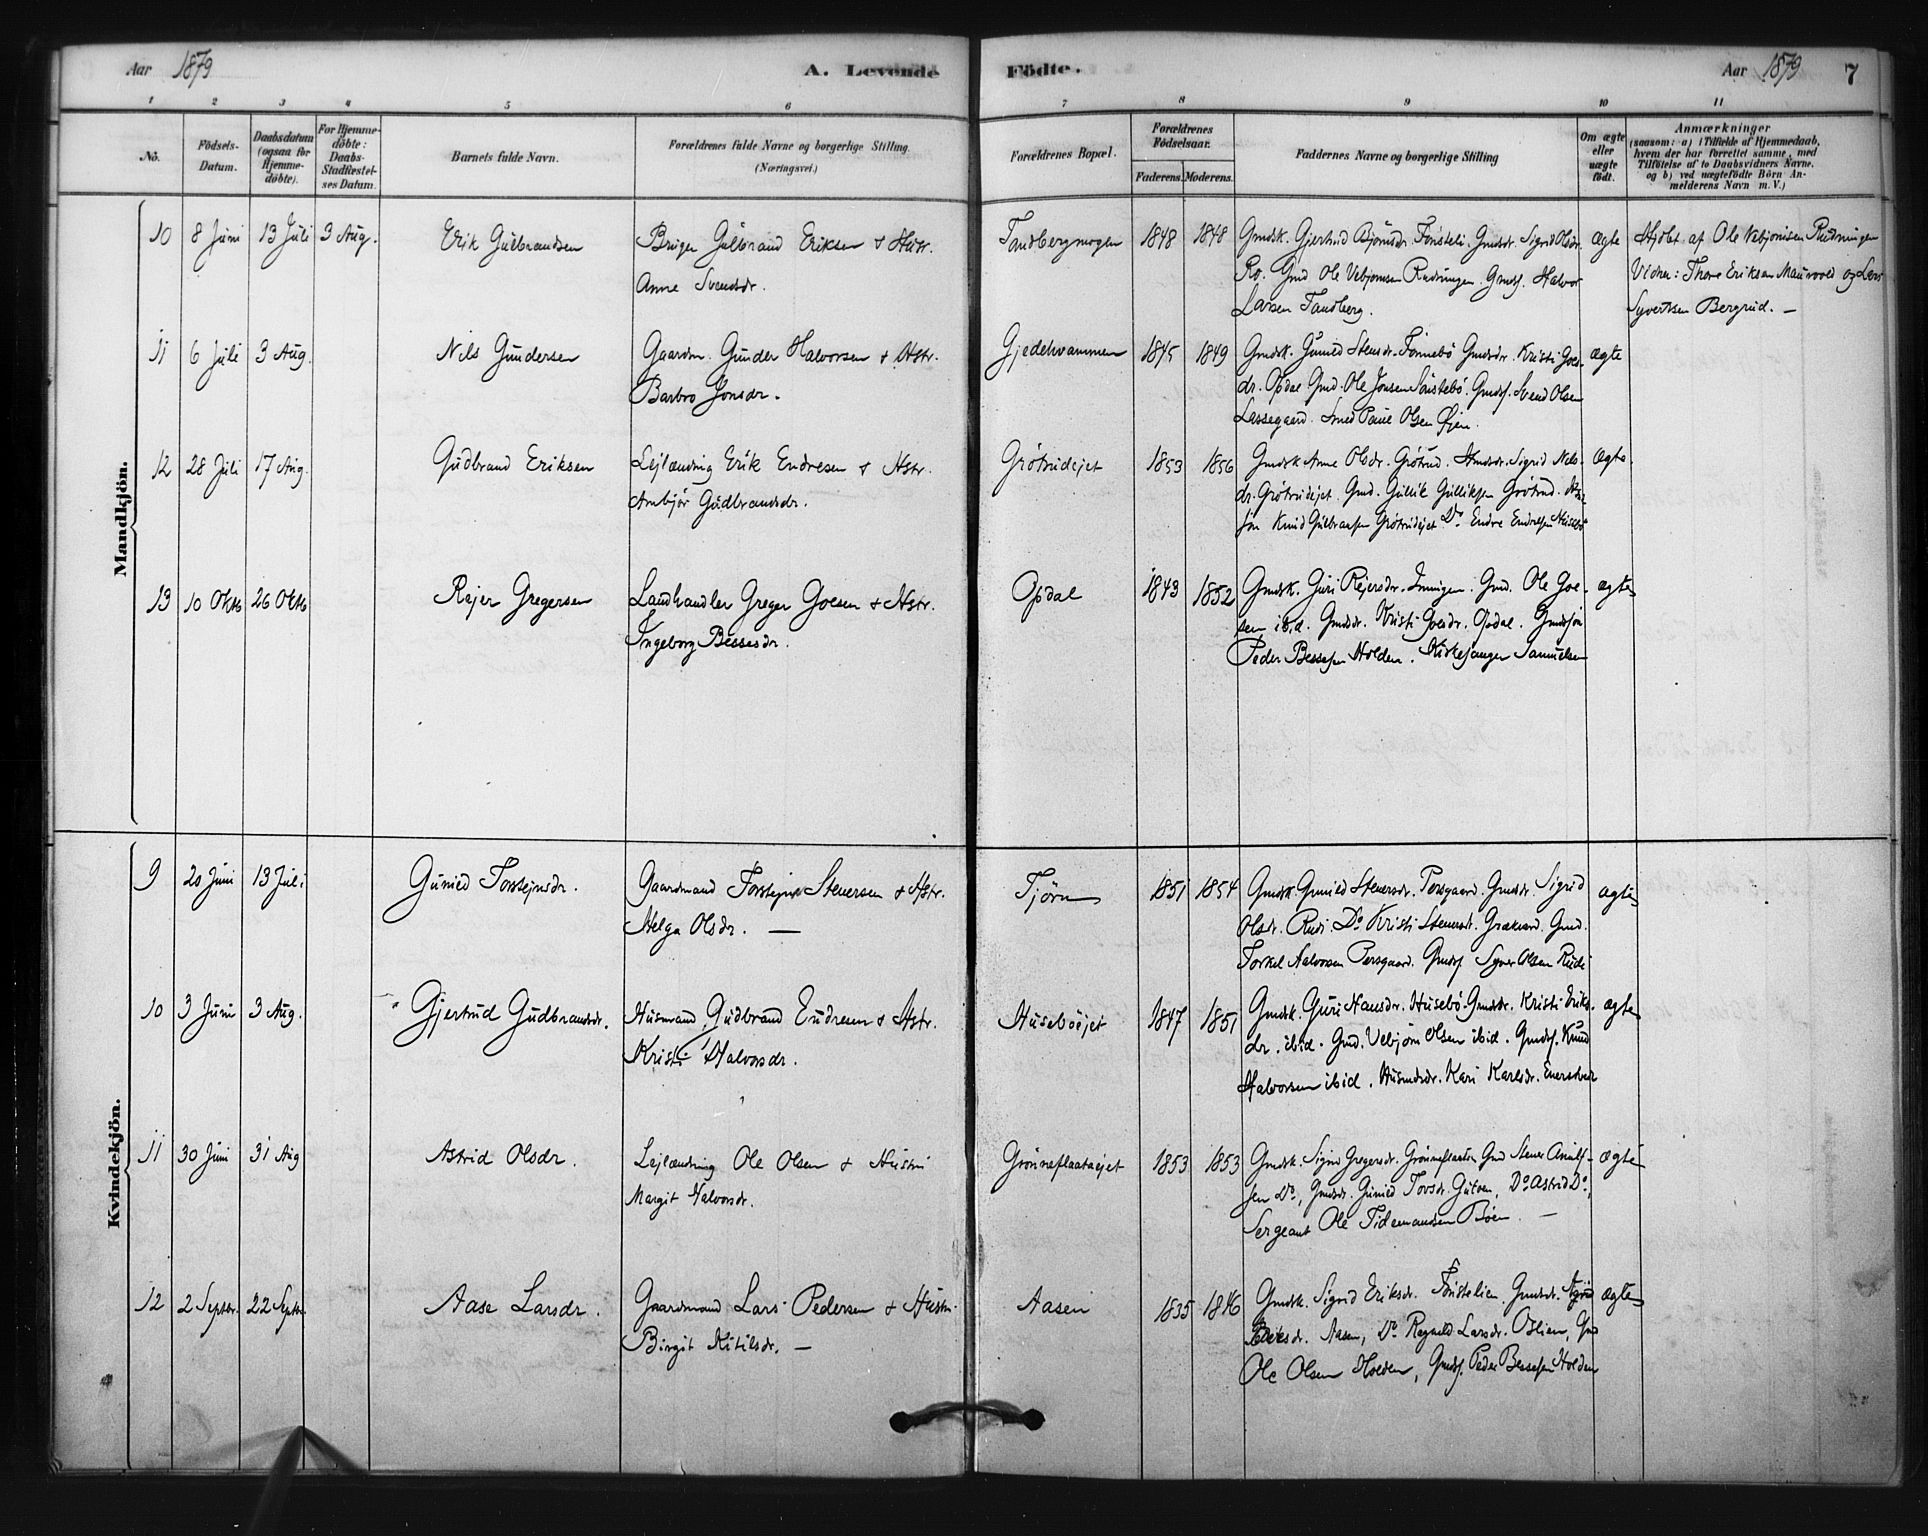 Aar 1879
A. Levende Födte.
Aar 1879 7
1 2 3 4 5 6 7 8 9 10 11
No.
Födsels-Datum.
Daabsdatum (ogsaa for Hjemme-döbte).
For Hjemme-döbte: Daabs-Stadfæstel-ses Datum.
Barnets fulde Navn.
Forældrenes fulde Navne og borgerlige Stilling.
(Næringsvei.)
Forældrenes Bopæl.
Forældrenes Födselsaar.
Faderens. Moderens.
Faddernes Navne og borgerlige Stilling
Om ægte eller uægte födt.
Anmærkninger
(saasom: a) i Tilfælde af Hjemmedaab, hvem der har forrettet samme, med Tilföielse af to Daabsvidners Navne, og b) ved uægtefödte Börn An-melderens Navn m. V.)
Mandkjön.
10 8 Juni 13 Juli 3 Aug. Erik Gulbrandsen
Bruger Gulbrand Eriksen & Hstr.
Anne Svendsdr.
Tandbergmogen 1848 1848
Gmdsk. Gjertrud Bjørnsdr. Fønsteli. Gmdsdr. Sigrid Olsdr.
Ro. Gmd Ole Vebjørnsen Rudningen. Gmdsf. Halvor
Larsen Tandberg.
ægte
Hjdbt af Ole Vebjørnsen Rudningen
Vidner: Thore Eriksen og Lars
Syvertsen Bergrud. —
11 6 Juli 3 Aug. Nils Gundersen
Gaardm. Gunder Halvorsen & Hstr.
Barbro Jonsdr.
Gjedehvammen 1845 1849
Gmdsk. Gunild Stensdr. Tønnebö Gmdsdr. Kristi Goes-
dr. Opdal Gmd. Ole Jonsen Sønstebö. Gmdsf. Svend Olsen
Lassegaard. Smed Paul Olsen Øjen.
ægte
12 28 Juli 17 Aug. Gudbrand Eriksen
Lejlænding Erik Endresen & Hstr.
Ambjør Gudbrandsdr.
Grötrudejet 1853 1856
Gmdsk Anne Olsdr. Grötrud. Hmdsdr. Sigrid Nils-
dr. Grötrudejet. Gmd. Gullik Gulliksen Grötrud.
Knud Gulbransen Grötrudejet Do Endre Endresen Husebö
ægte.
13 10 Oktb 26 Oktb Rejer Gregersen
Landhandler Greger Goesen & Hstr.
Ingeborg Bessesdr.
Opdal 1843 1852
Gmdsk. Guri Rejersdr. Gmd. Ole Goe-
sen ibid. Gmdsdr. Kristi Goesdr. Opdal.
Peder Bessesen Holden. Kirkesanger Samuelsen
ægte
Kvindekjön.
9 20 Juni 13 Juli Gunild Torstejnsdr.
Gaardmand Torstejn Stenersen & Hstr.
Helga Olsdr. —
Tjørn 1851 1854
Gmdsk. Gunild Stenersdr. Persgaard. Gmdsdr. Sigrid
Olsdr. Rudi. Do Kristi Stenersdr. Gmd.
Torkel Halvorsen Persgaard. Gmdsf Syver Olsen Rudi
ægte
10 3 Juni 3 Aug. Gjertrud Gudbrandsdr.
Husmand Gudbrand Endresen & Hstr.
Kristi Halvorsdr.
Huseböejet 1847 1851
Gmdsk. Guri Hansdr. Husebö. Gmdsdr. Kristi Eriks-
dr. ibid. Gmd. Vebjørn Olsen ibid. Gmdsf. Knud
Halvorsen ibid. Husmdsdr. Kari Karlsdr.
ægte
11 30 Juni 31 Aug Astrid Olsdr.
Lejlænding Ole Olsen & Hustru
Margit Halvorsdr.
Grönneflaataejet 1853 1853
Gmdsk. Sigrid Gregersdr. Grönneflaaten Gmd Stener
sen Do, Gmdsdr. Gunild Tovsdr. Do Astrid Do,
Sergeant Ole Tidemandsen Böen. —
ægte
12 2 Septbr. 22 Septbr. Aase Larsdr.
Gaardmand Lars Pedersen & Hustru
Birgit Kitilsdr. —
Aasen 1835 1846
Gmdsk. Sigrid Eriksdr. Tönstelien. Gmdsdr.
Aasen, Do Ragnild Larsdr. Gmd
Ole Olsen Holden, Gmdsf. Peder Bessesen Holden
ægte